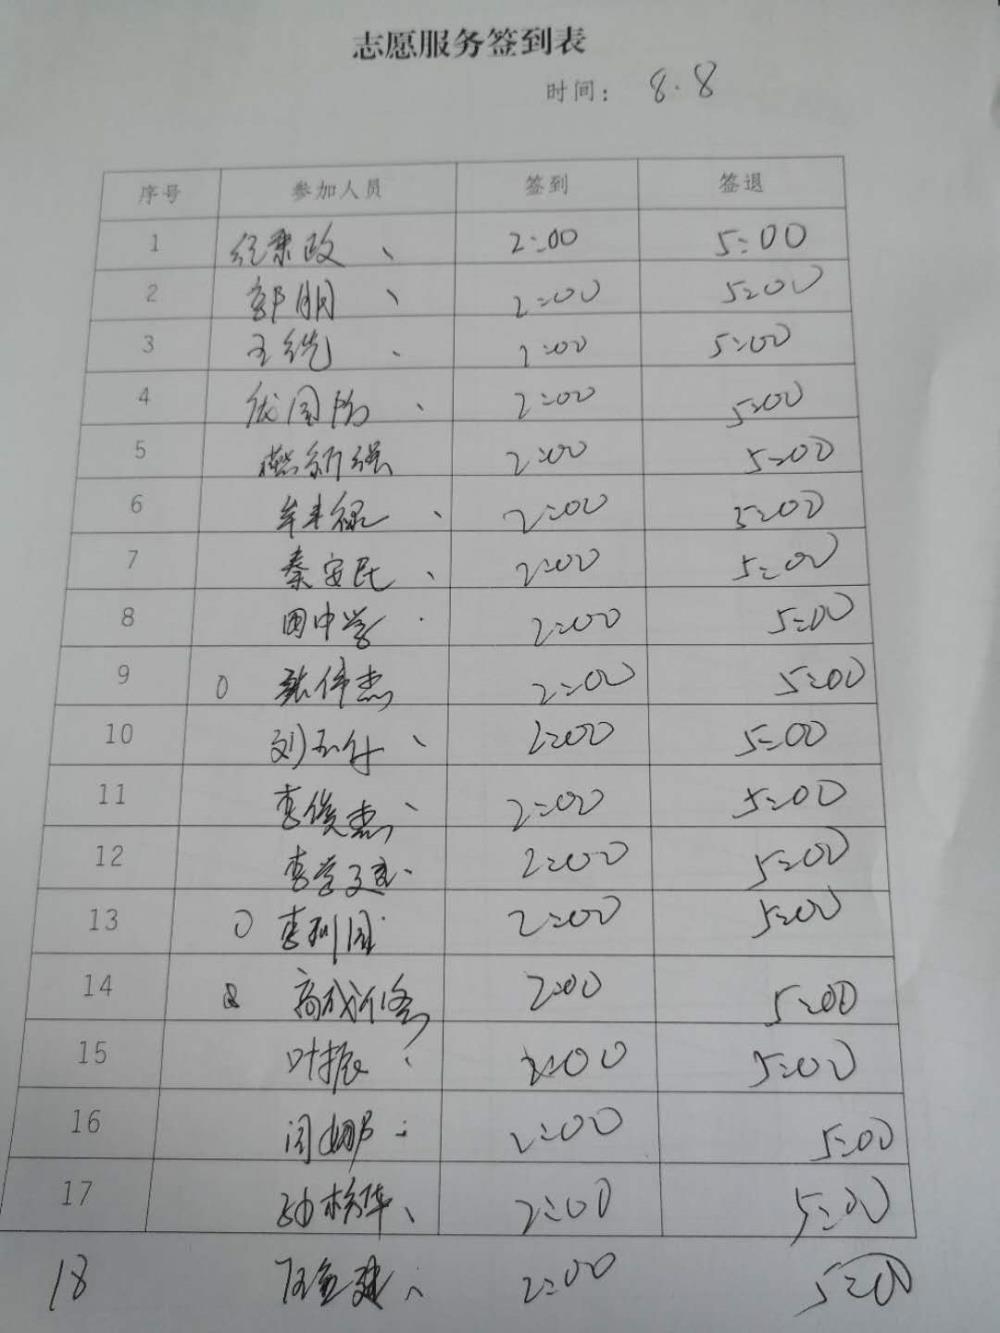 志愿服务签到表
时间： 8.8
序号 参加人员 签到 签退
1 纪秉政 2:00 5:00
2 郭明 2:00 5:00
3 王 2:00 5:00
4 国 2:00 5:00
5 燕新强 2:00 5:00
6 牟来禄 2:00 5:00
7 秦安民 2:00 5:00
8 田中学 2:00 5:00
9 张伟杰 2:00 5:00
10 刘玉 2:00 5:00
11 李俊杰 2:00 5:00
12 李学建 2:00 5:00
13 李利国 2:00 5:00
14 高成 2:00 5:00
15 叶振 2:00 5:00
16 闫娜 2:00 5:00
17 华 2:00 5:00
18 建 2:00 5:00